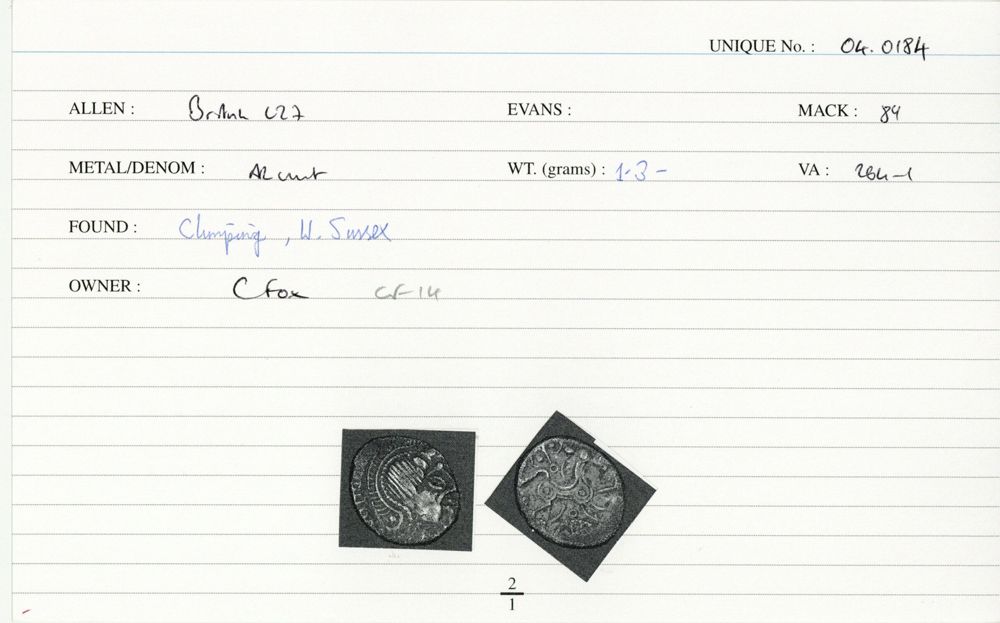 UNIQUE No. : 04.0184
ALLEN : British L27 EVANS : MACK : 89
METAL/DENOM : AR unit WT. (grams) : 1.3 - VA : 284-1
FOUND : Climping, W. Sussex
OWNER : C Fox CF-14
2
1